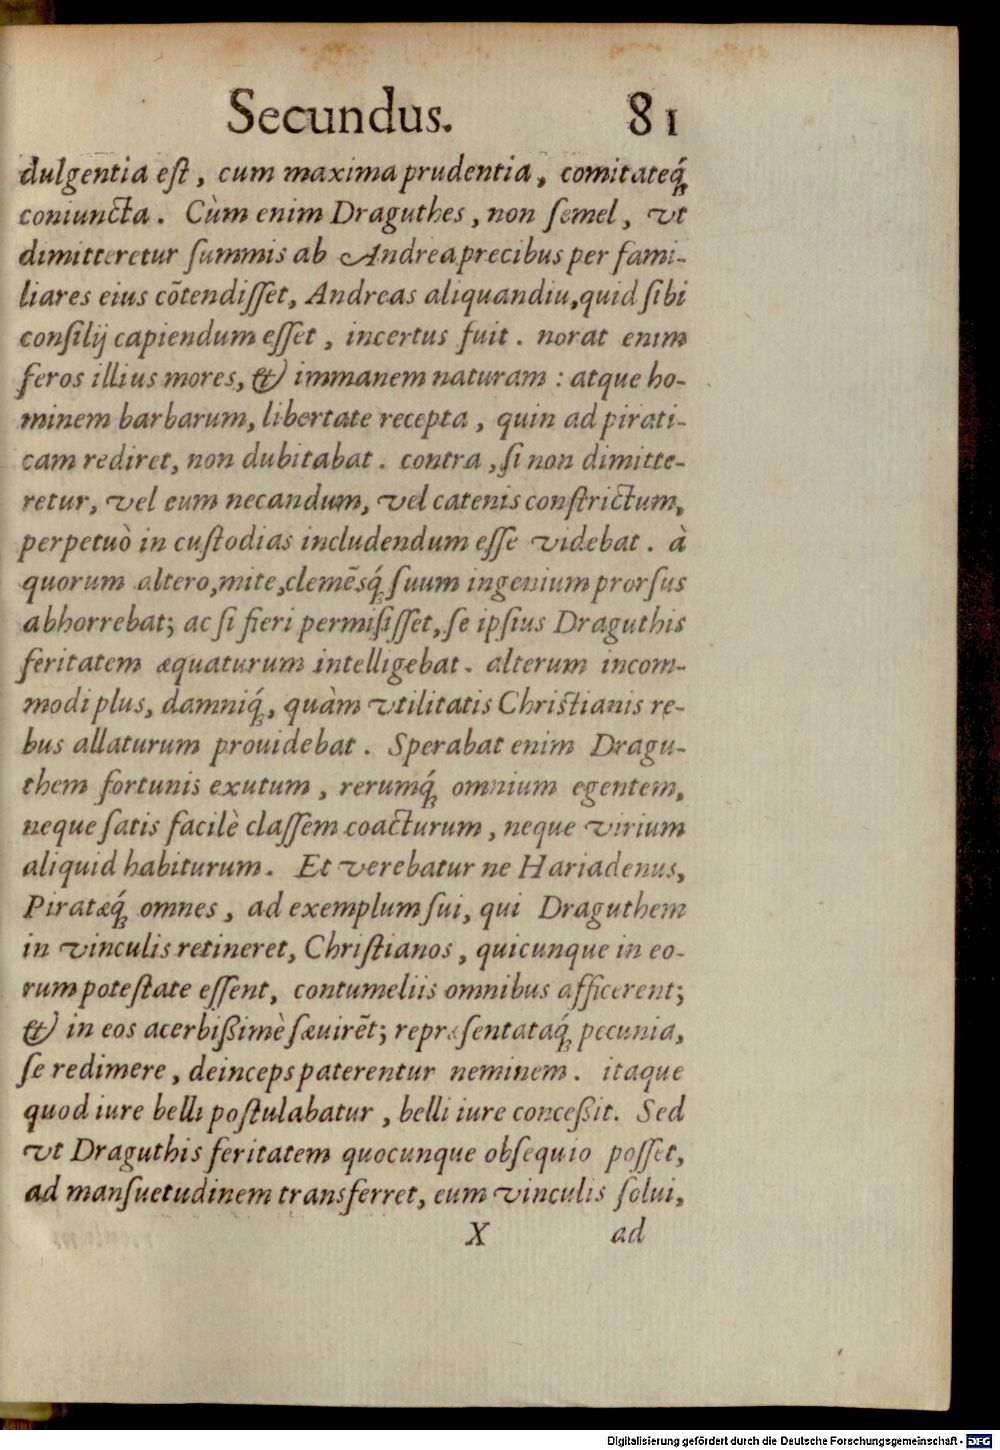 Secundus. 81
dulgentia eſt, cum maxima prudentia, comitateq́;
coniuncta. Cùm enim Draguthes, non ſemel, vt
dimitteretur ſummis ab Andrea precibus per fami-
liares eius cōtendiſſet, Andreas aliquandiu, quid ſibi
conſilij capiendum eſſet, incertus fuit. norat enim
feros illius mores, & immanem naturam: atque ho-
minem barbarum, libertate recepta, quin ad pirati-
cam rediret, non dubitabat. contra, ſi non dimitte-
retur, vel eum necandum, vel catenis conſtrictum,
perpetuò in cuſtodias includendum eſſe videbat. à
quorum altero, mite, clemēsq́; ſuum ingenium prorſus
abhorrebat; ac ſi fieri permiſiſſet, ſe ipſius Draguthis
feritatem æquaturum intelligebat. alterum incom-
modi plus, damniq́;, quàm vtilitatis Chriſtianis re-
bus allaturum prouidebat. Sperabat enim Dragu-
them fortunis exutum, rerumq́; omnium egentem,
neque ſatis facilè claſſem coacturum, neque virium
aliquid habiturum. Et verebatur ne Hariadenus,
Piratæq́; omnes, ad exemplum ſui, qui Draguthem
in vinculis retineret, Chriſtianos, quicunque in eo-
rum poteſtate eſſent, contumeliis omnibus afficerent;
& in eos acerbißimè ſæuirēt; repræſentataq́; pecunia,
ſe redimere, deinceps paterentur neminem. itaque
quod iure belli poſtulabatur, belli iure conceßit. Sed
vt Draguthis feritatem quocunque obſequio poſſet,
ad manſuetudinem transferret, eum vinculis ſolui,
X ad
Digitalisierung gefördert durch die Deutsche Forschungsgemeinschaft - DFG